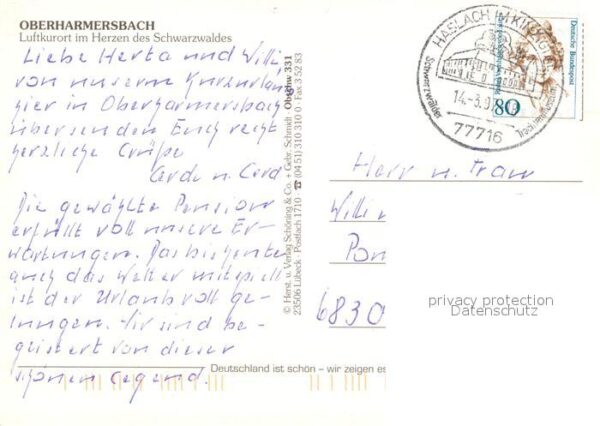 OBERHARMERSBACH
Luftkurort im Herzen des Schwarzwaldes
Liebe Herta und Willi
von unserem Kurzurlau
hier in Oberharmersbach
übersenden Euch recht
herzliche Grüße
Gerda u. Gerd
Die gewählte Pension
erfüllt voll unsere Er-
wartungen. Das bis heute
auch das Wetter mitspielt
ist der Urlaub voll ge-
lungen. Wir sind be-
geistert von dieser
schönen Gegend.
© Herst. u. Verlag Schöning & Co. + Gebr. Schmidt
23506 Lübeck · Postfach 1710 ☎ (04 51) 310 310 0 · Fax 3 52 83
331
Deutschland ist schön – wir zeigen es
HASLACH IM KINZIGTAL
Schwarzwälder
14.-3.9
77716
Deutsche Bundespost
80
Herr u. Frau
Willi
6830
privacy protection
Datenschutz